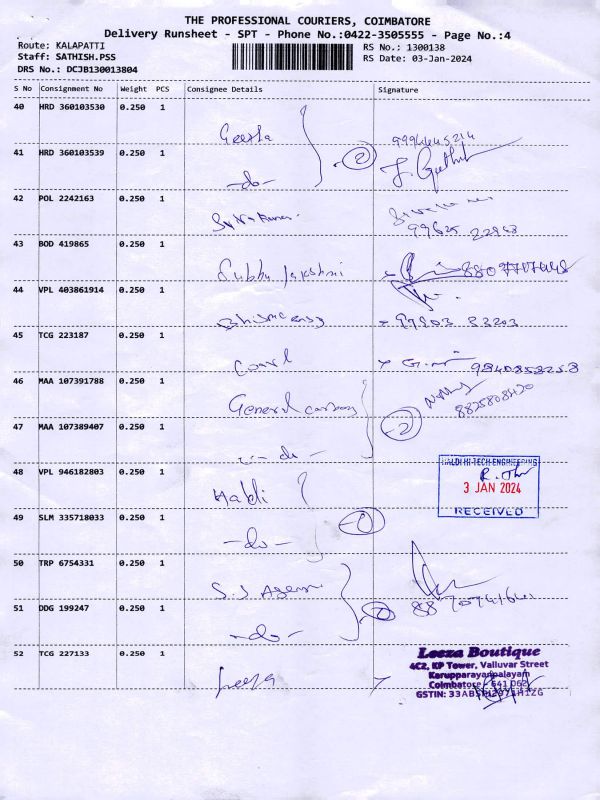 THE PROFESSIONAL COURIERS, COIMBATORE
Delivery Runsheet - SPT - Phone No.:0422-3505555 - Page No.:4
Route: KALAPATTI
RS No.: 1300138
Staff: SATHISH.PSS
RS Date: 03-Jan-2024
DRS No.: DCJB130013804
S No Consignment No Weight PCS Consignee Details Signature
40 HRD 360103530 0.250 1
Geetha 9994445214
41 HRD 360103539 0.250 1
2
-do-
42 POL 2242163 0.250 1
99625
43 BOD 419865 0.250 1
Subbu Lakshmi
44 VPL 403861914 0.250 1
97903 83203
45 TCG 223187 0.250 1
46 MAA 107391788 0.250 1
General
8825808420
47 MAA 107389407 0.250 1
2
- do -
48 VPL 946182803 0.250 1
Haldi
HALDI HI-TECH ENGINEERING
3 JAN 2024
RECEIVED
49 SLM 335718033 0.250 1
- do -
50 TRP 6754331 0.250 1
S.S Agency
51 DDG 199247 0.250 1
- do -
52 TCG 227133 0.250 1
Leeza
Leeza Boutique
4C2, KP Tower, Valluvar Street
Karupparayanpalayam
Coimbatore - 641 062
GSTIN: